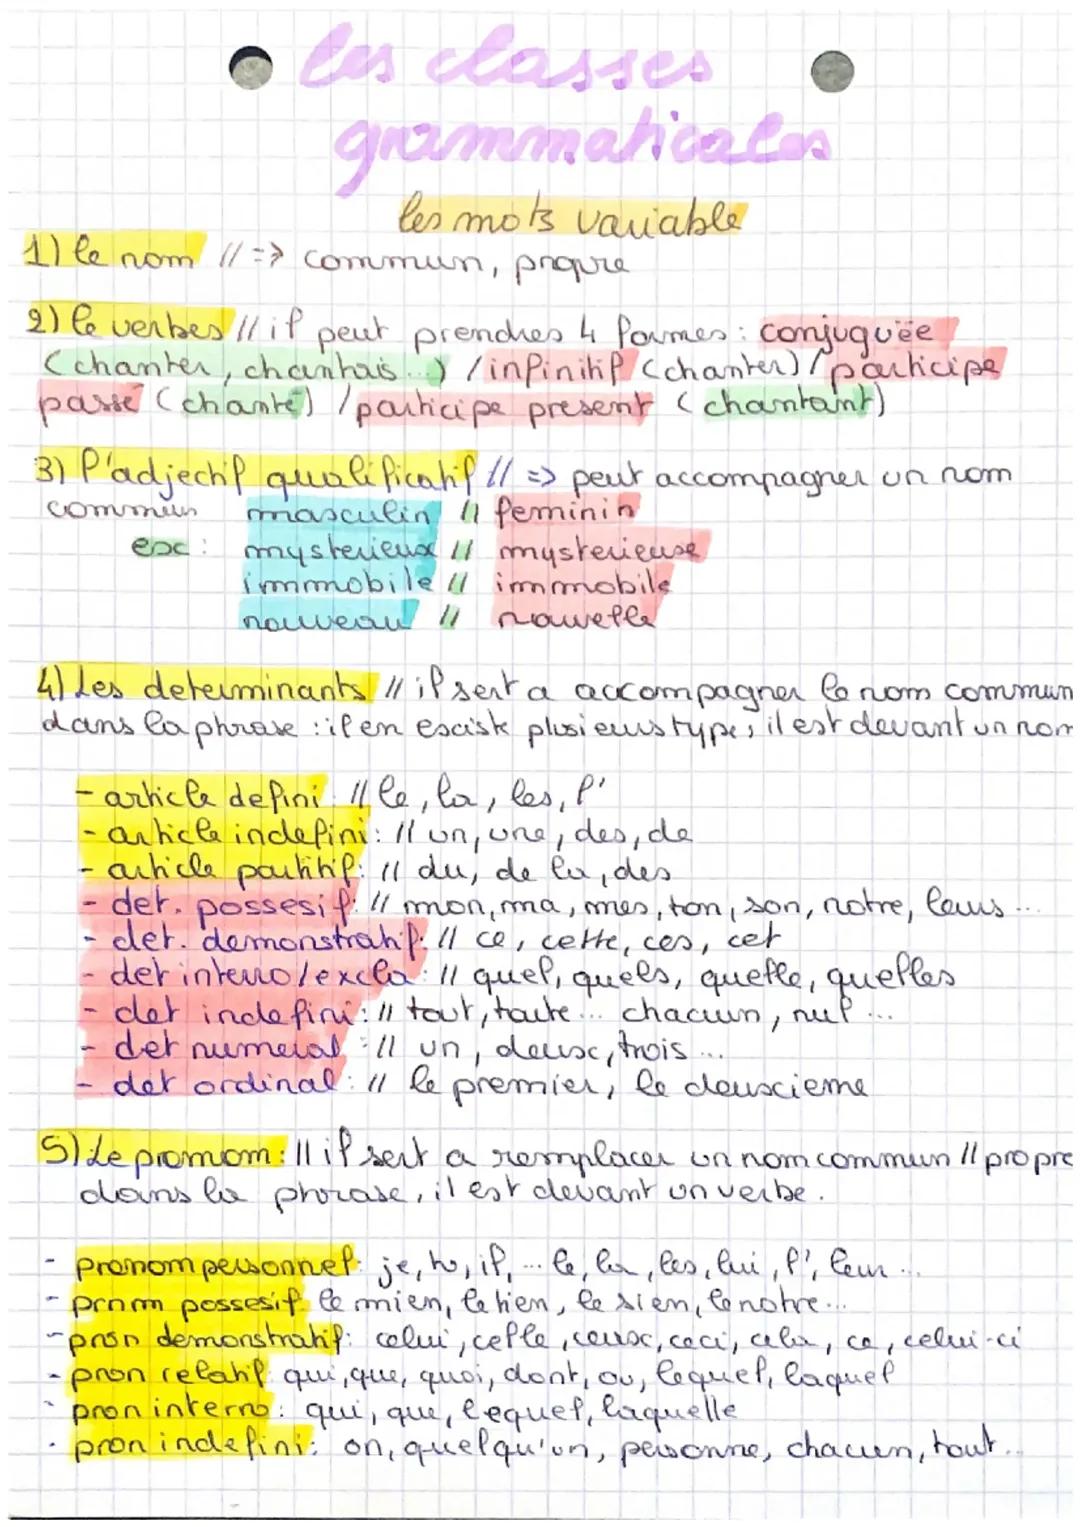 les classes
grammaticales
les mots variable
1) le nom // => commun, propre
2) le verbes // il peut prendres 4 formes : conjuguëe
(chanter, chantais...) / infinitif (chanter) / participe
passé (chanté) / participe present (chantant)
3) l'adjectif qualificatif // => peut accompagner un nom
commun masculin // feminin
ex : mysterieux // mysterieuse
immobile // immobile
nouveau // nouvelle
4) Les determinants // il sert a accompagner le nom commun
dans la phrase : il en existe plusieurs type, il est devant un nom
- article defini : // le, la, les, l'
- article indefini : // un, une, des, de
- article partitif : // du, de la, des
- det. possesif : // mon, ma, mes, ton, son, notre, leurs ...
- det. demonstratif : // ce, cette, ces, cet
- det interro/excla : // quel, quels, quelle, quelles
- det indefini : // tout, toute ... chacun, nul ...
- det numeral : // un, deux, trois ...
- det ordinal : // le premier, le deuxieme
5) Le pronom : // il sert a remplacer un nom commun // propre
dans la phrase, il est devant un verbe.
- pronom personnel : je, tu, il, ... le, la, les, lui, l', leur ...
- pronm possesif le mien, le tien, le sien, le notre ...
- pron demonstratif : celui, celle, ceux, ceci, cela, ce, celui-ci
- pron relatif : qui, que, quoi, dont, ou, lequel, laquel
- pron interro : qui, que, lequel, laquelle
- pron indefini : on, quelqu'un, personne, chacun, tout ...